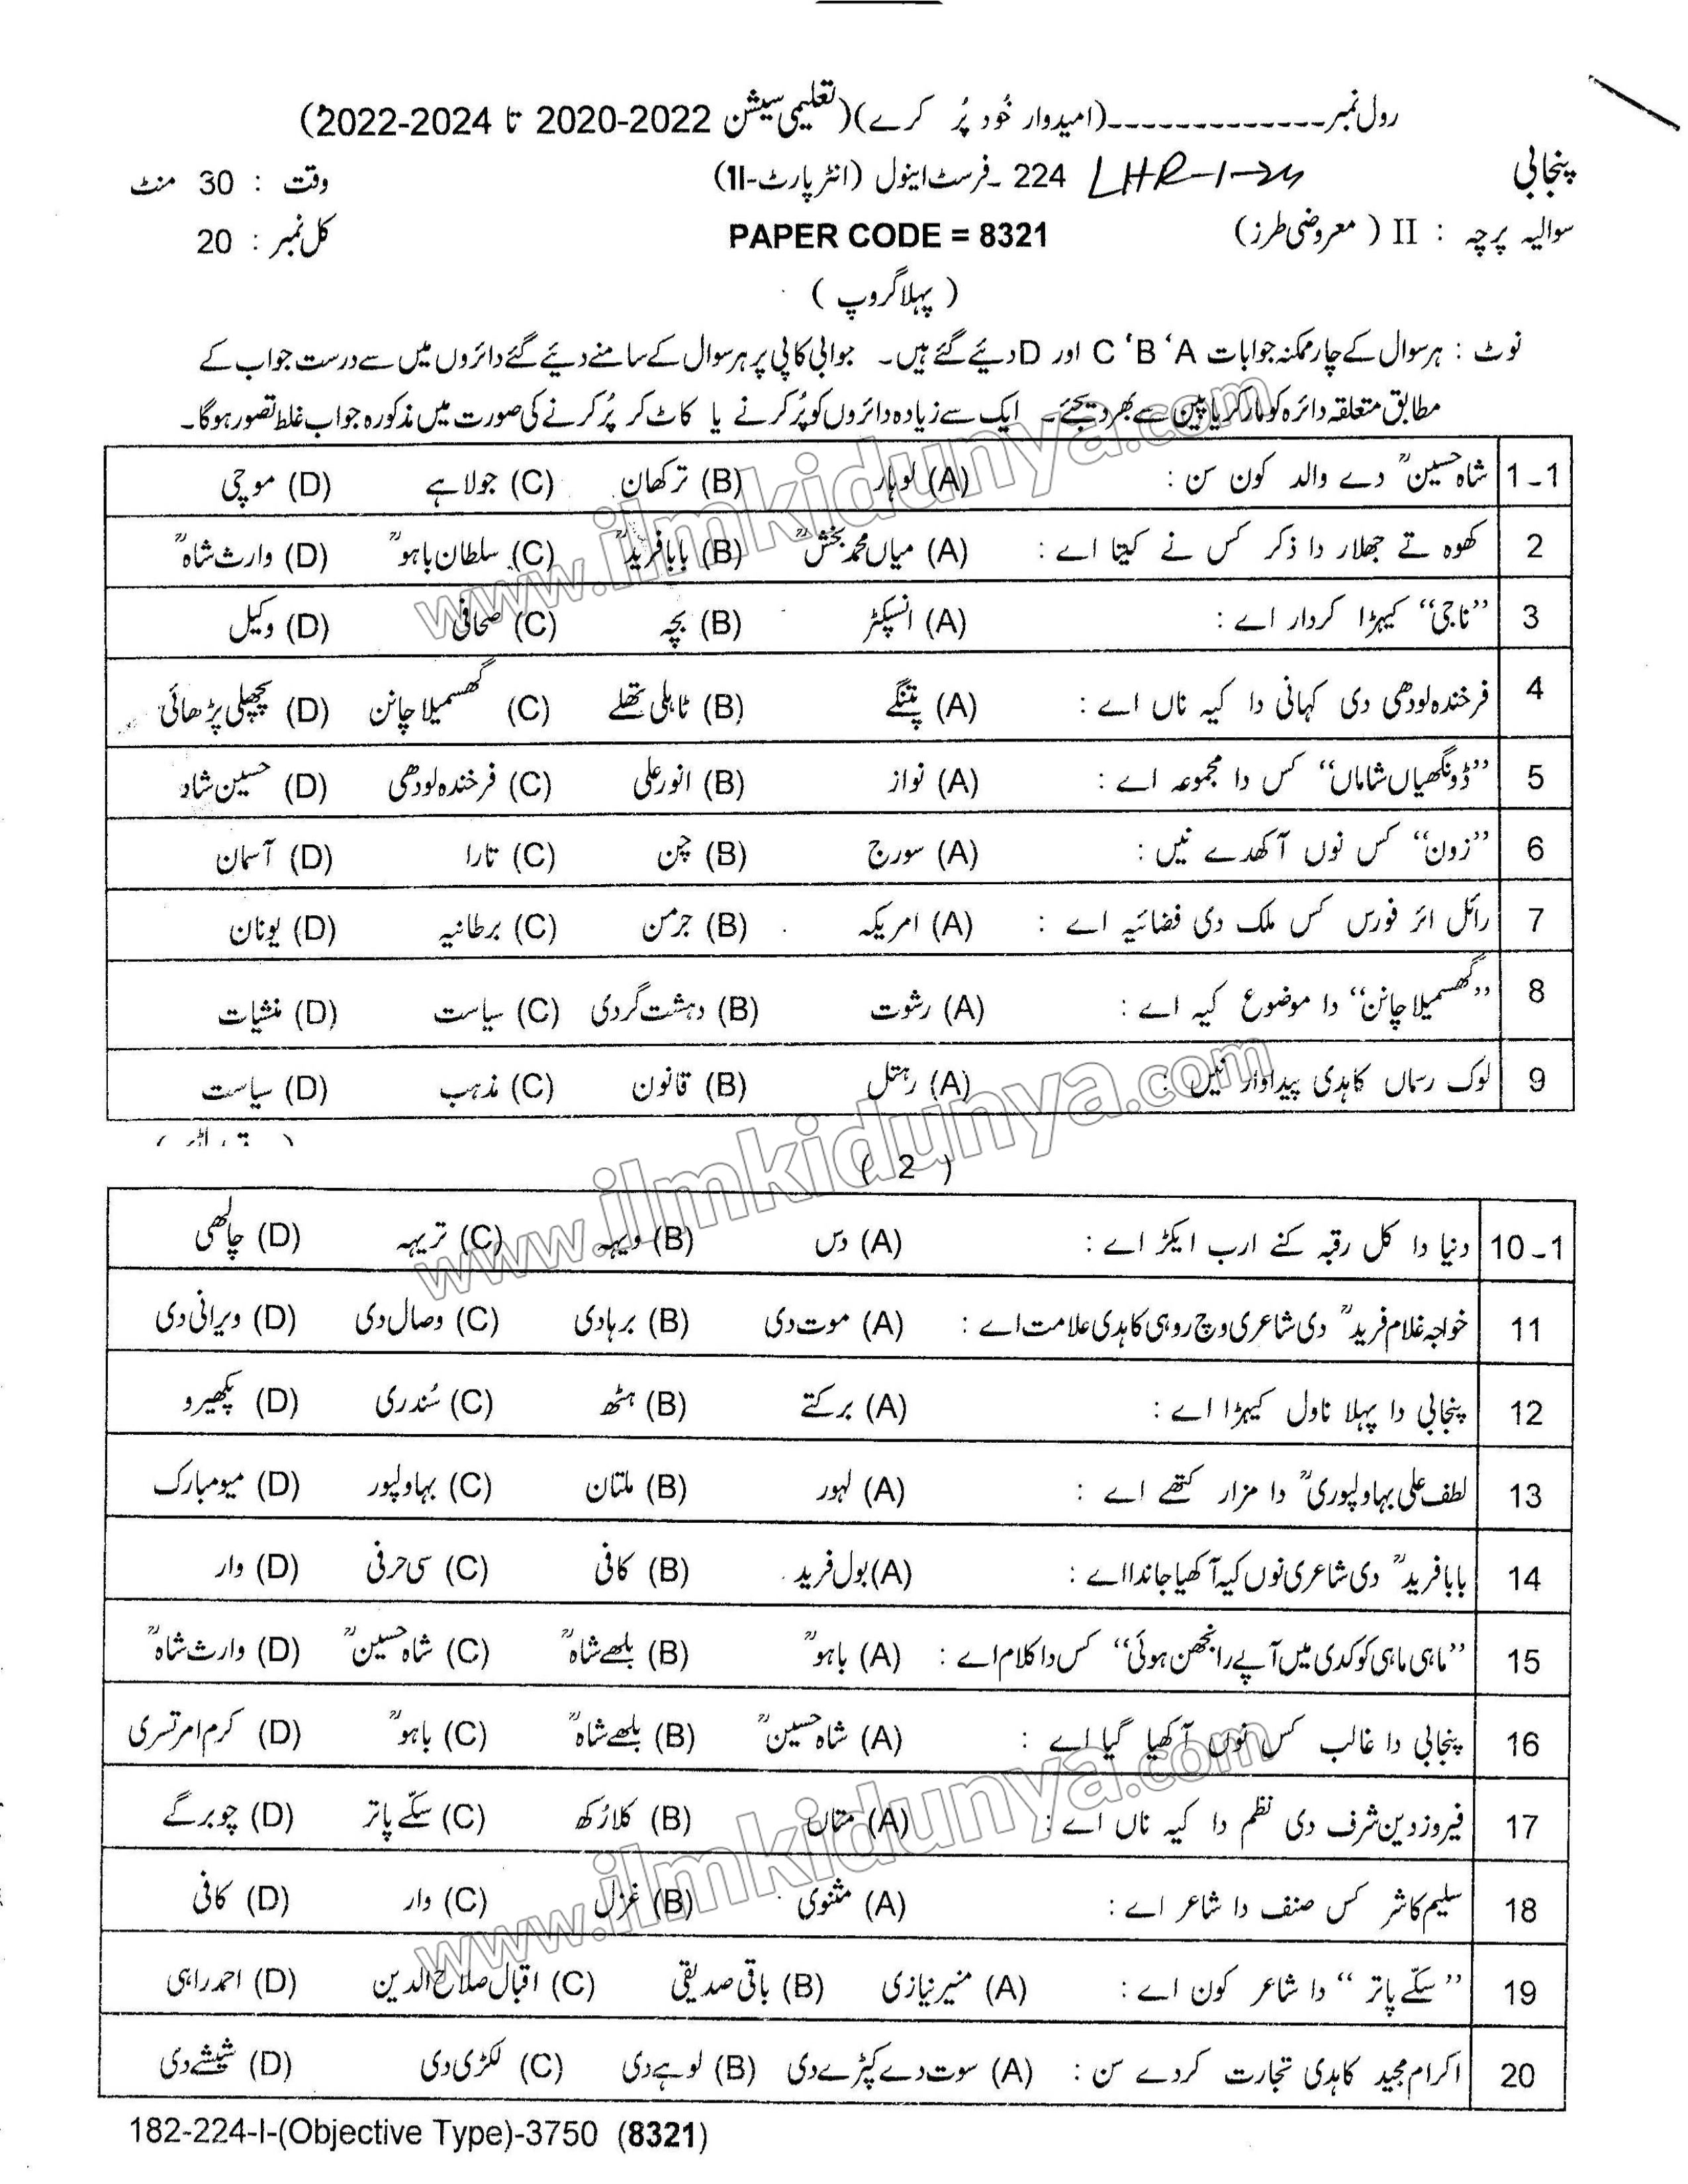 رول نمبر۔۔۔۔۔۔۔۔۔۔۔۔۔(امیدوار خُود پُر کرے)(تعلیمی سیشن 2022-2020 تا 2024-2022)
پنجابی LHR-1-24 224 ۔فرسٹ اینول (انٹر پارٹ-II) وقت : 30 منٹ
سوالیہ پرچہ : II ( معروضی طرز) PAPER CODE = 8321 کل نمبر : 20
( پہلا گروپ )
نوٹ : ہر سوال کے چار ممکنہ جوابات A ‘B ‘C اور D دیئے گئے ہیں۔ جوابی کاپی پر ہر سوال کے سامنے دیئے گئے دائروں میں سے درست جواب کے
مطابق متعلقہ دائرہ کو مارکر یا پین سے بھر دیجئے۔ ایک سے زیادہ دائروں کو پُر کرنے یا کاٹ کر پُر کرنے کی صورت میں مذکورہ جواب غلط تصور ہوگا۔
1۔1 شاہ حسینؒ دے والد کون سن : (A) لوہار (B) ترکھان (C) جولاہے (D) موچی
2 کھوہ تے جھلار دا ذکر کس نے کیتا اے : (A) میاں محمد بخشؒ (B) بابا فریدؒ (C) سلطان باہوؒ (D) وارث شاہؒ
3 ”ناجی“ کیہڑا کردار اے : (A) انسپکٹر (B) بچہ (C) صحافی (D) وکیل
4 فرخندہ لودھی دی کہانی دا کیہ ناں اے : (A) پتنگے (B) ٹاہلی تھلے (C) گھسمیلا چانن (D) پچھلی پڑھائی
5 ”ڈونگھیاں شاماں“ کس دا مجموعہ اے : (A) نواز (B) انور علی (C) فرخندہ لودھی (D) حسین شاد
6 ”زون“ کس نوں آکھدے نیں : (A) سورج (B) چن (C) تارا (D) آسمان
7 رائل ائر فورس کس ملک دی فضائیہ اے : (A) امریکہ (B) جرمن (C) برطانیہ (D) یونان
8 ”گھسمیلا چانن“ دا موضوع کیہ اے : (A) رشوت (B) دہشت گردی (C) سیاست (D) منشیات
9 لوک رساں کاہدی پیداوار نیں : (A) رہتل (B) قانون (C) مذہب (D) سیاست
( 2 )
10۔1 دنیا دا کل رقبہ کنے ارب ایکڑ اے : (A) دس (B) ویہہ (C) تریہہ (D) چالھی
11 خواجہ غلام فریدؒ دی شاعری وچ روہی کاہدی علامت اے : (A) موت دی (B) برہا دی (C) وصال دی (D) ویرانی دی
12 پنجابی دا پہلا ناول کیہڑا اے : (A) برکتے (B) ہٹھ (C) سُندری (D) پکھیرو
13 لطف علی بہاولپوریؒ دا مزار کتھے اے : (A) لہور (B) ملتان (C) بہاولپور (D) میو مبارک
14 بابا فریدؒ دی شاعری نوں کیہ آکھیا جاندا اے : (A) بول فرید (B) کافی (C) سی حرفی (D) وار
15 ”ماہی ماہی کوکدی میں آپے رانجھن ہوئی“ کس دا کلام اے : (A) باہوؒ (B) بلھے شاہؒ (C) شاہ حسینؒ (D) وارث شاہؒ
16 پنجابی دا غالب کس نوں آکھیا گیا اے : (A) شاہ حسینؒ (B) بلھے شاہؒ (C) باہوؒ (D) کرم امرتسری
17 فیروز دین شرف دی نظم دا کیہ ناں اے : (A) متاں (B) کلا رُکھ (C) سکّے پاتر (D) چوبرگے
18 سلیم کاشر کس صنف دا شاعر اے : (A) مثنوی (B) غزل (C) وار (D) کافی
19 ”سکّے پاتر“ دا شاعر کون اے : (A) منیر نیازی (B) باقی صدیقی (C) اقبال صلاح الدین (D) احمد راہی
20 اکرام مجید کاہدی تجارت کردے سن : (A) سوت دے کپڑے دی (B) لوہے دی (C) لکڑی دی (D) شیشے دی
182-224-I-(Objective Type)-3750 (8321)
www.ilmkidunya.com
www.ilmkidunya.com
www.ilmkidunya.com